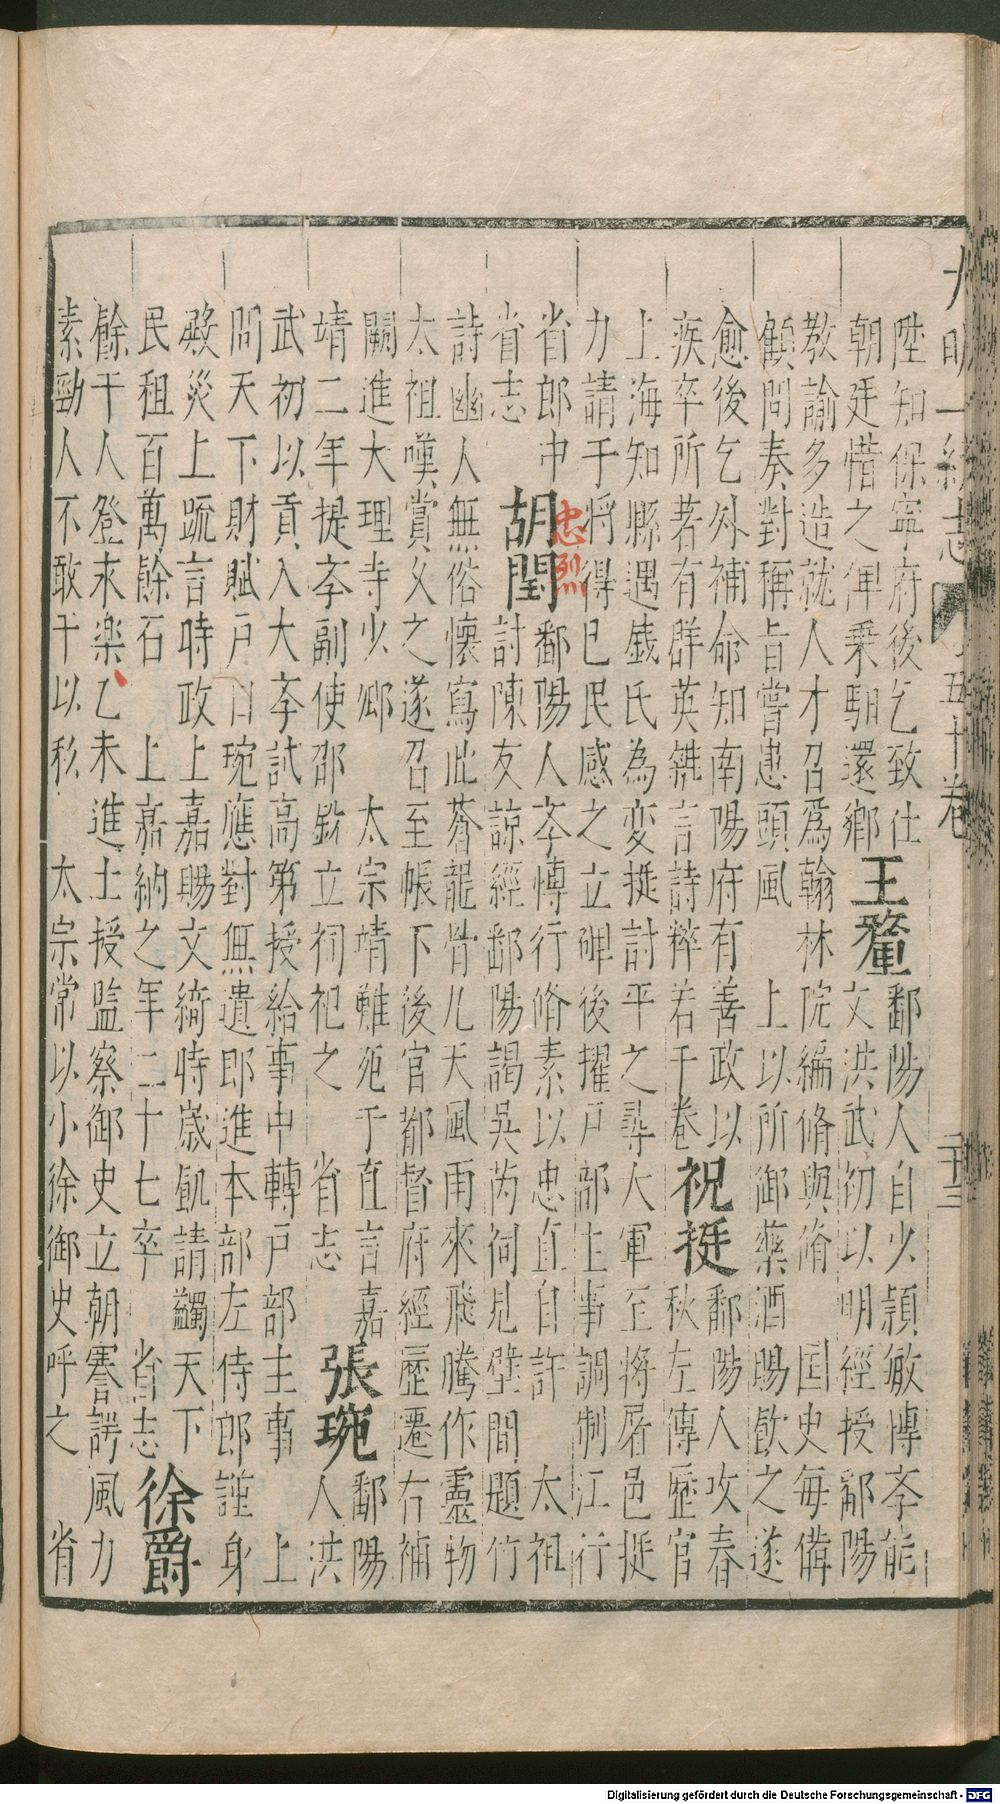 大明一統志
五十卷
二十三
陞知保寧府後乞致仕
朝廷惜之俾乗馹還鄉
王鼇
鄱陽人自少頴敏博斈能
文洪武初以明經授鄱陽
教諭多造就人才召爲翰林院編脩與脩 国史每備
顧問奏對稱旨嘗患頭風 上以所御藥酒賜飲之遂
愈後乞外補命知南陽府有善政以
疾卒所著有群英雜言詩粹若干卷
祝挺
鄱陽人攻春
秋左傳歷官
上海知縣遇錢氏為変挺討平之尋大軍至將屠邑挺
力請于將得已民感之立碑後擢戶部主事調制江行
省郎中
省志
胡閏
忠烈
鄱陽人斈博行脩素以忠直自許 太祖
討陳友諒經鄱陽謁吳芮祠見壁間題竹
詩幽人無俗懷寫此蒼龍骨九天風雨來飛騰作靈物
太祖嘆賞久之遂召至帳下後官都督府經歷遷右補
闕進大理寺少卿 太宗靖難死于直言嘉
靖二年提斈副使邵銳立祠祀之 省志
張琬
鄱陽
人洪
武初以貢入大斈試高第授給事中轉戶部主事 上
問天下財賦戶口琬應對無遺郎進本部左侍郎謹身
殿災上疏言時政上嘉賜文綺時歲飢請蠲天下
民租百萬餘石 上嘉納之年二十七卒 省志
徐爵
餘干人登永楽乙未進士授監察御史立朝謇諤風力
素勁人不敢干以私 太宗常以小徐御史呼之 省
Digitalisierung gefördert durch die Deutsche Forschungsgemeinschaft - DFG